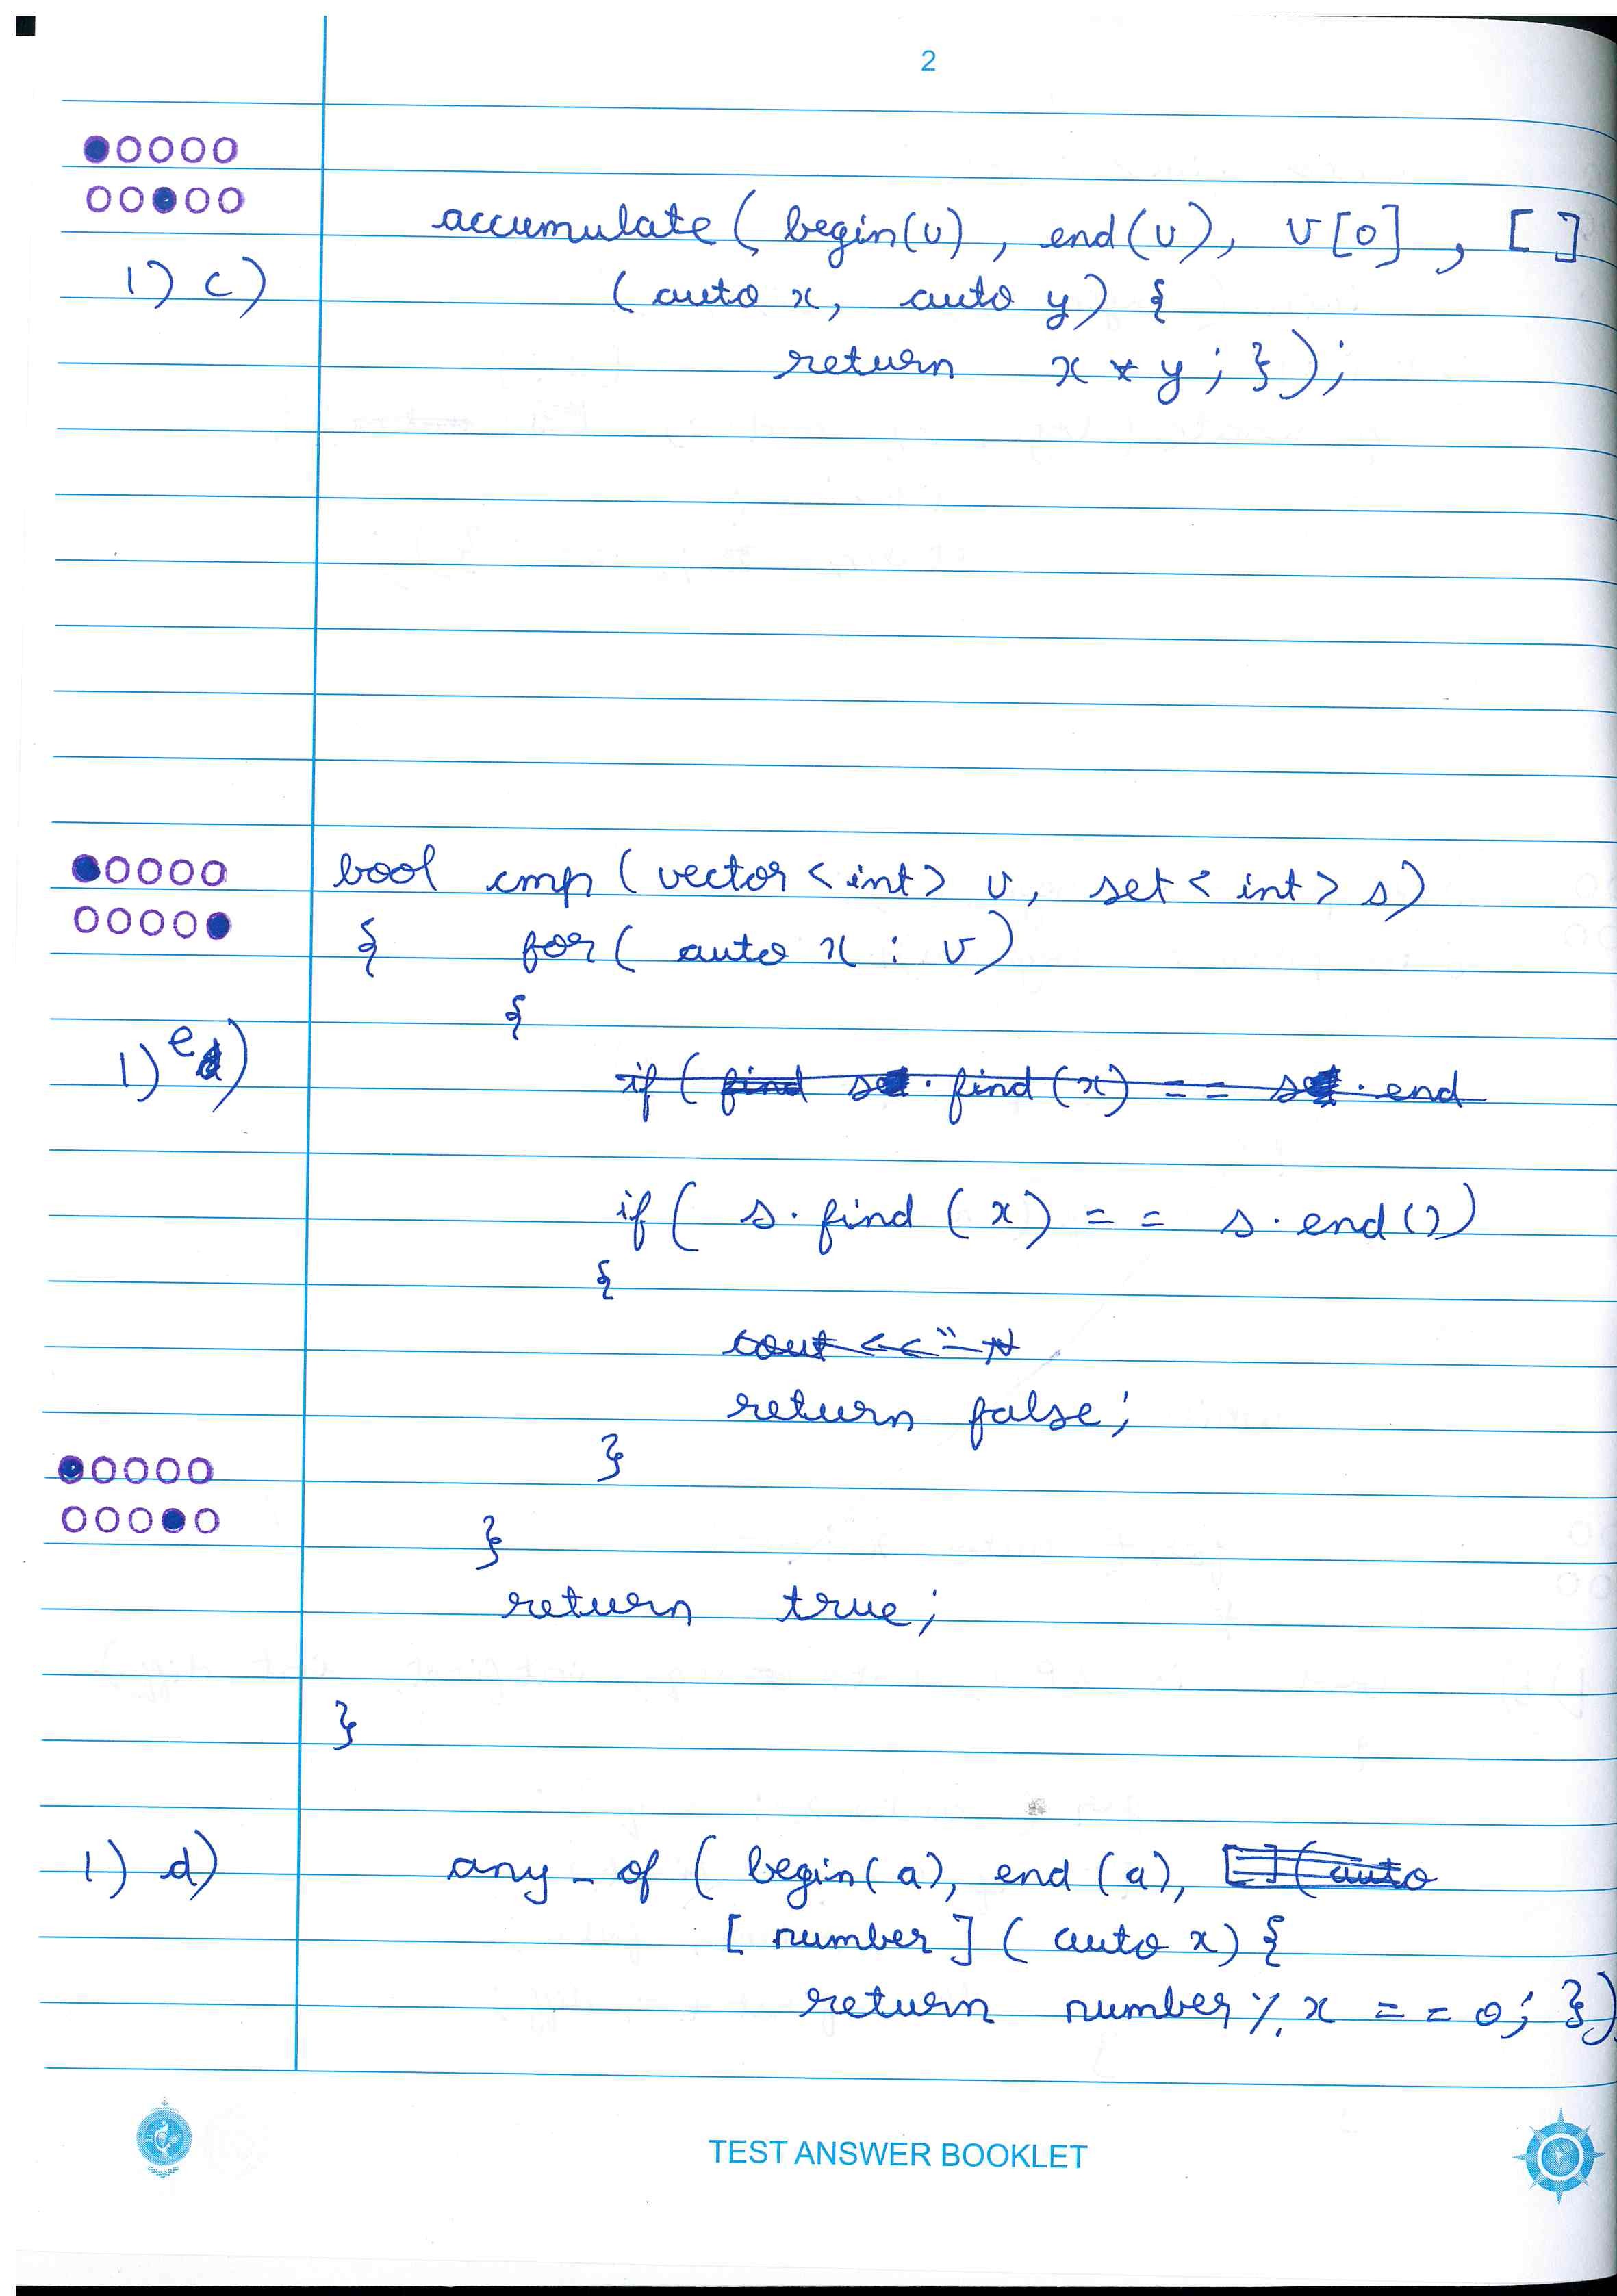 2
accumulate ( begin(v) , end(v), v[0] , [ ]
1) c)
(auto x, auto y) {
return x * y ; } );
bool cmp (vector < int > v, set < int > s)
{ for( auto x : v)
{
1) e)
if ( find s . find (x) == s . end
if ( s. find ( x ) = = s. end ( ) )
{
cout << " N
return false;
}
}
return true;
}
1) d) any _ of ( begin(a), end (a), [ ] ( auto
[ number ] ( auto x) {
return number % x = = 0; })
TEST ANSWER BOOKLET